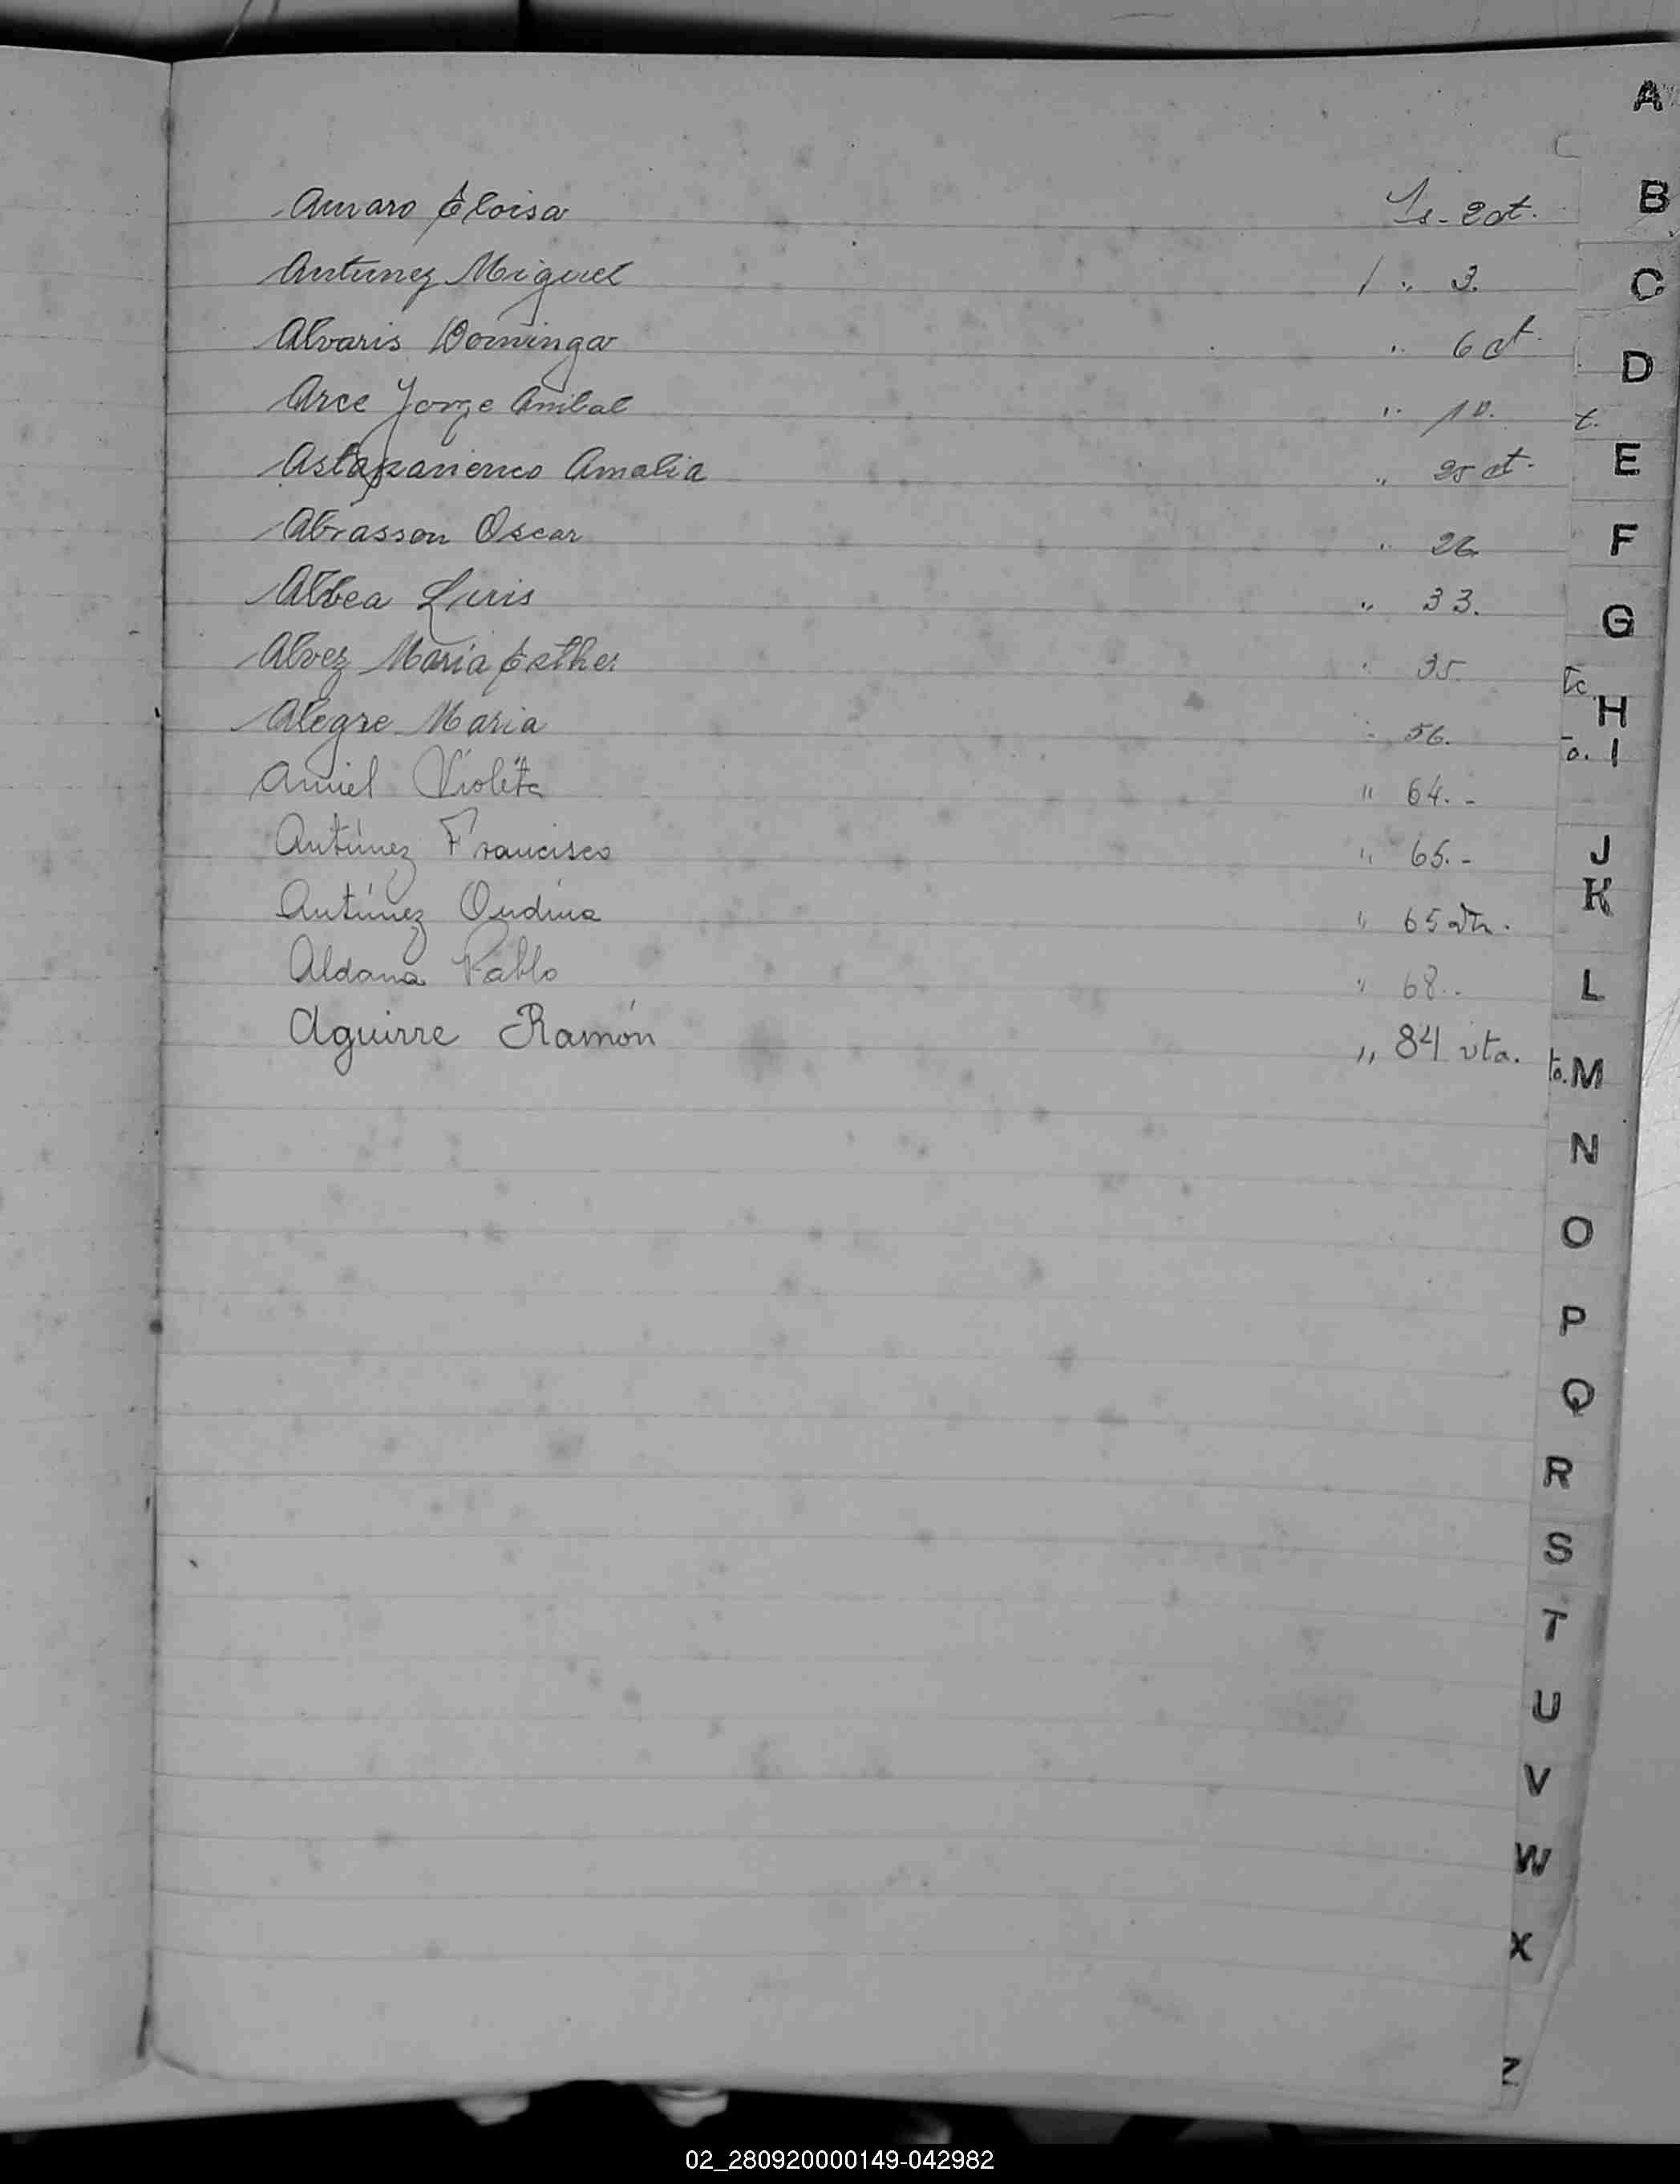 Amaro Eloisa 2 vt.
Antunez Miguel / " 3.
Alvaris Dominga " 6 vt.
Arce Jorge Anibal " 10.
Astaparienco Amalia " 25 vt.
Abrasson Oscar " 26
Albea Luis " 33.
Alvez Maria Esther " 35
Alegre Maria " 56.
Amiel Violeta " 64.-
Antúnez Francisco " 65.-
Antúnez Ondina " 65
Aldana Pablo " 68.-
Aguirre Ramón " 84 vta.
A
B
C
D
E
F
G
H
I
J
K
L
M
N
O
P
Q
R
S
T
U
V
W
X
Z
02_280920000149-042982